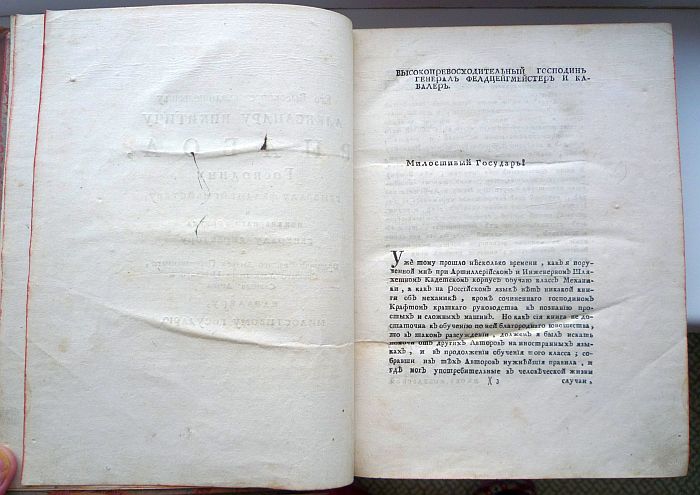 ВЫСОКОПРЕВОСХОДИТЕЛЬНЫЙ ГОСПОДИНЪ
ГЕНЕРАЛЪ ФЕЛДЦЕЙГМЕЙСТЕРЪ И КА-
ВАЛЕРЪ.
Милостивый Государь!
Уже тому прошло нѣсколько времени, какъ я пору-
ченной мнѣ при Артиллерійскомъ и Инженерномъ Шля-
хетномъ Кадетскомъ корпусѣ обучаю классъ Механи-
ки, а какъ на Россійскомъ языкѣ нѣтъ никакой кни-
ги объ механикѣ, кромѣ сочиненнаго господиномъ
Крафтомъ краткаго руководства къ познанію про-
стыхъ и сложныхъ машинъ. Но какъ сія книга не до-
статочна къ обученію по ней благороднаго юношества,
то въ такомъ разсужденіи, долженъ я былъ искать
помочи отъ другихъ Авторовъ на иностранныхъ язы-
кахъ, и въ продолженіи обученія того класса; со-
бравши изъ тѣхъ Авторовъ нужнѣйшія правила, и
гдѣ могъ употребительные въ человѣческой жизни
)( 3 случаи,